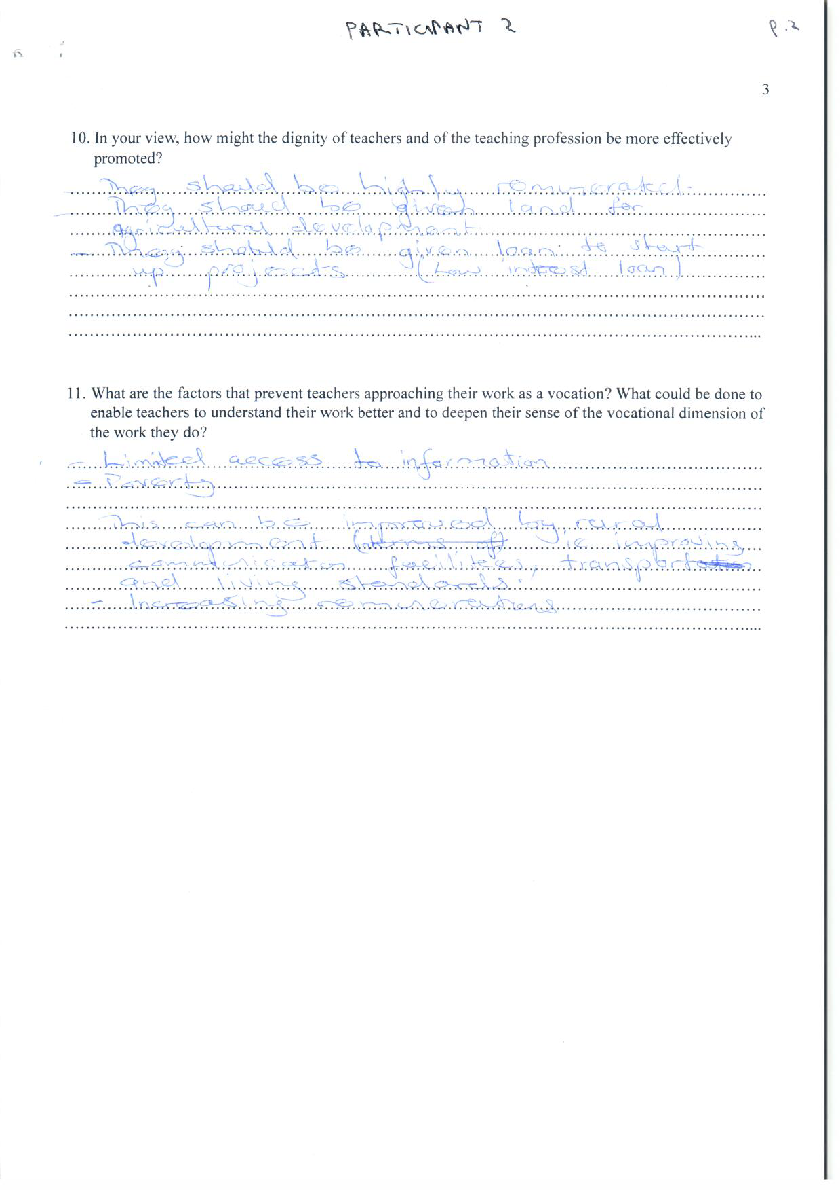 PARTICIPANT 2
P.2
3
10. In your view, how might the dignity of teachers and of the teaching profession be more effectively
promoted?
They should be highly remunerated.
They should be given land for
agricultural development
- They should be given loan to start
up projects (Low interest loan)
11. What are the factors that prevent teachers approaching their work as a vocation? What could be done to
enable teachers to understand their work better and to deepen their sense of the vocational dimension of
the work they do?
- Limited access to information
- Poverty
This can be improved by rural
development ie improving
communication facilities, transport
and living standards.
- Increasing remunerations